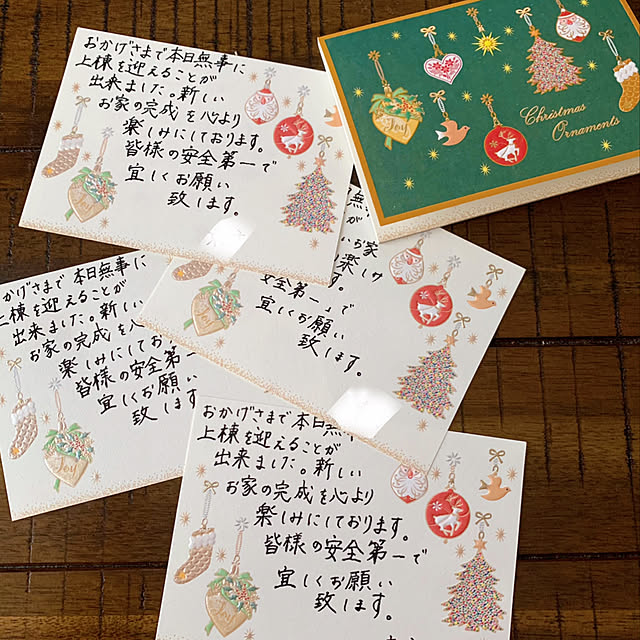 おかげさまで本日無事に
上棟を迎えることが
出来ました。新しい
お家の完成を心より
楽しみにしております。
皆様の安全第一で
宜しくお願い
致します。
Joy
Joy
Christmas
Ornaments
いお家
楽しみ
安全第一で
宜しくお願い
致します。
かげさまで本日無事に
上棟を迎えることが
出来ました。新しい
お家の完成を心
楽しみにして
皆様の安全第一
宜しくお願
致します
Joy
おかげさまで本日無
上棟を迎えることが
出来ました。新しい
お家の完成を心より
楽しみにしております。
皆様の安全第一で
宜しくお願い
致します。